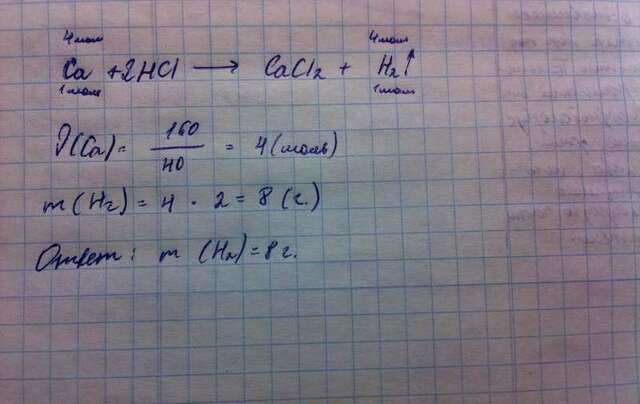 4моль 4моль
Ca + 2HCl → CaCl2 + H2↑
1моль 1моль
ν(Ca) = 160/40 = 4 (моль)
m (H2) = 4 · 2 = 8 (г.)
Ответ: m (H2) = 8 г.